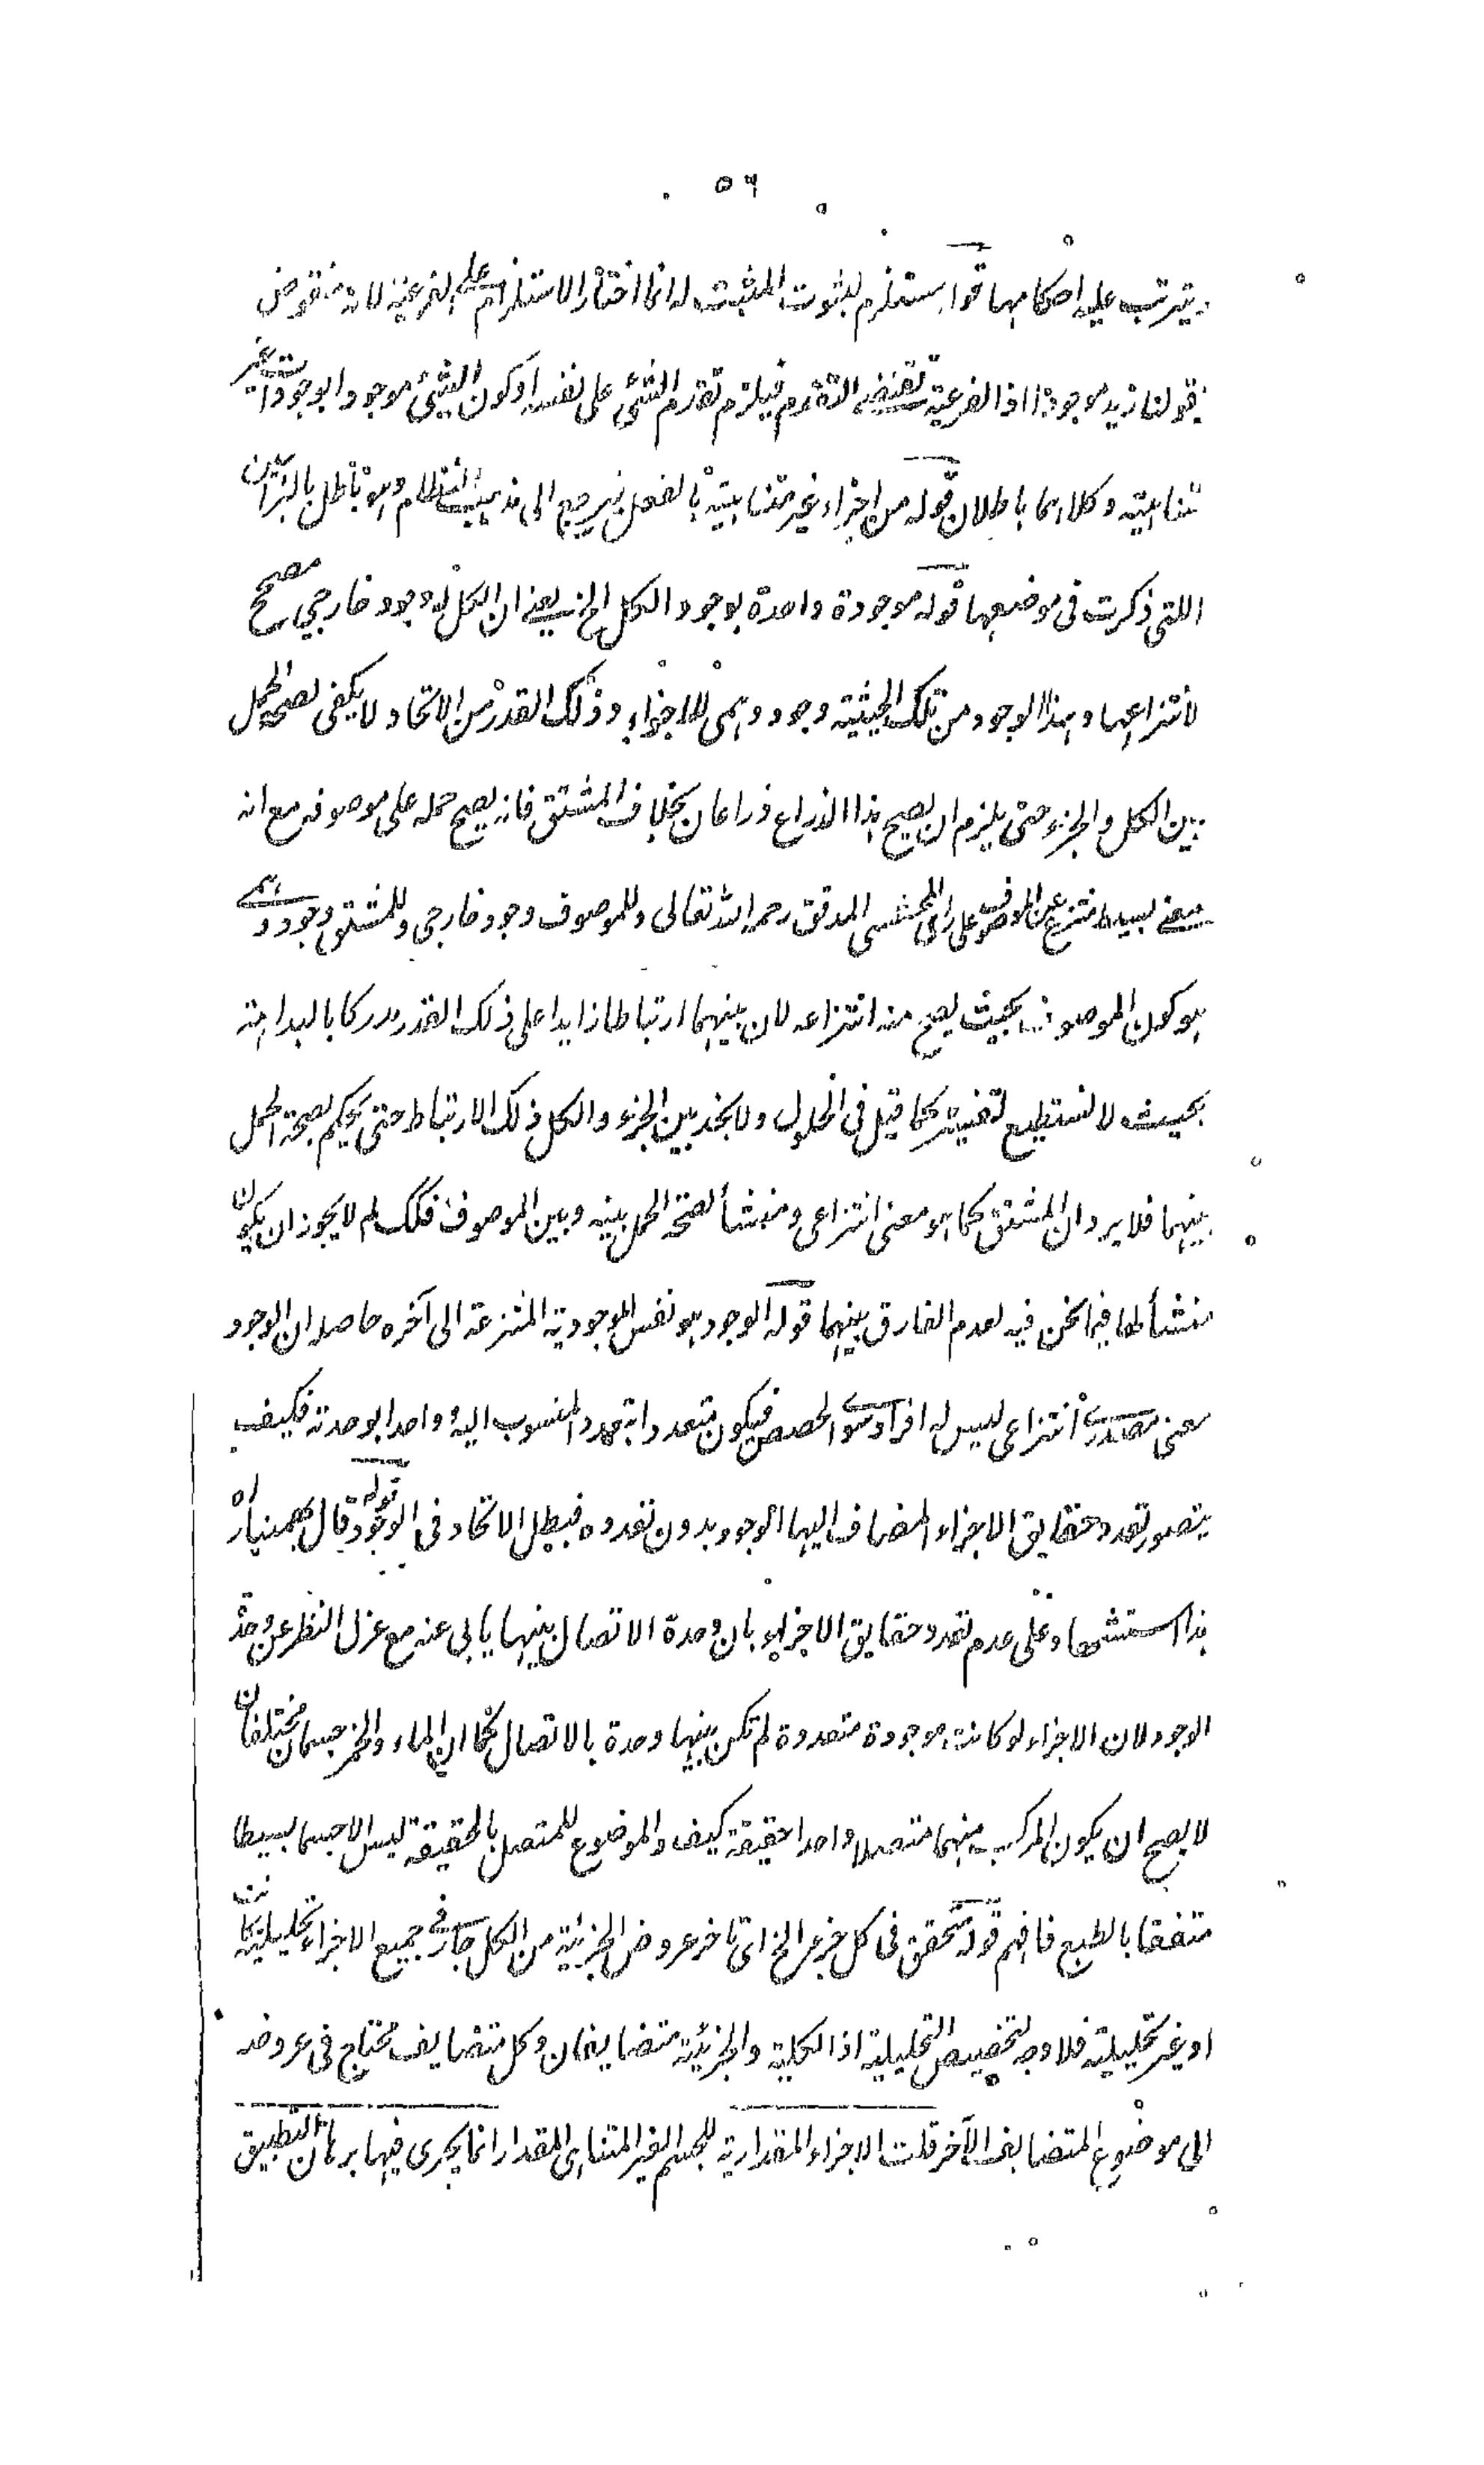 ٥٦
يترتب عليه احكامها قوله يستلزم لثبوت المثبت له انما اختار الاستلزام على الفرعية لانه منقوض
بقولنا زيد موجود اذا الفرعية تقتضى التقدم فيلزم تقدم الشئ على نفسه او كون الشئ موجودا بوجودات غير
متناهية وكلاهما باطلان قوله من اجزاء غير متناهية بالفعل فيرجع الى مذهب النظام وهو باطل بالبراهين
اللتى ذكرت فى موضعها قوله موجودة واحدة بوجود الكل الخ يعنى ان الكل له وجود خارجى مصحح
لانتزاعها وهذا الوجود من تلك الحيثية وجود وهمى للاجزاء وذلك القدر من الاتحاد لا يكفى لصحة الحمل
بين الكل والجزء حتى يلزم ان يصح هذا الذراع ذراعان بخلاف المشتق فانه يصح حمله على موصوفه مع انه
معنى بسيط منتزع عن الموصوف على راى المحشى المدقق رحمه الله تعالى وللموصوف وجود خارجى وللمشتق وجود وهمى
هو كون الموصوف بحيث يصح منه انتزاعه لان بينهما ارتباطا زايدا على ذلك القدر مدركا بالبداهة
بحيث لا نستطيع تفسيره كما قيل فى الحلول ولا نجد بين الجزء والكل ذلك الارتباط حتى يحكم بصحة الحمل
بينهما فلا يرد ان المشتق كما هو معنى انتزاعى ومنشأ لصحة الحمل بينه وبين الموصوف فكك لم لا يجوز ان يكون
منشأ لها فيما نحن فيه لعدم الفارق بينهما قوله الوجود هو نفس الموجودية المنتزعة الى آخره حاصله ان الوجود
معنى مصدرى انتزاعى ليس له افراد سوى الحصص فيكون متعددا بتعدد المنسوب اليه وواحدا بوحدته فكيف
يتصور تعدد حقايق الاجزاء المضاف اليها الوجود بدون تعدده فبطل الاتحاد فى الوجود قوله قال بهمنيار اه
هذا استشهاد على عدم تعدد حقايق الاجزاء بان وحدة الاتصال بينها يابى عنه مع عزل النظر عن وحدة
الوجود لان الاجزاء لو كانت موجودة متعددة لم تكن بينها وحدة بالاتصال كما ان الماء والخمر جسمان مختلفان
لا يصح ان يكون المركب منهما متصلا واحدا حقيقة كيف والموضوع للمتصل بالحقيقة ليس الا جسما بسيطا
متفقا بالطبع فافهم قوله متحقق فى كل جزء الخ اى تاخر عروض الجزئية من الكل جار فى جميع الاجزاء تحليلية كانت
او غير تحليلية فلا وجه لتخصيص التحليلية اذ الكلية والجزئية متضايفان وكل متضايف محتاج فى عروضه
الى موضوع المتضايف الآخر قلت الاجزاء المقدارية للجسم الغير المتناهى المقدار انما يجرى فيها برهان التطبيق